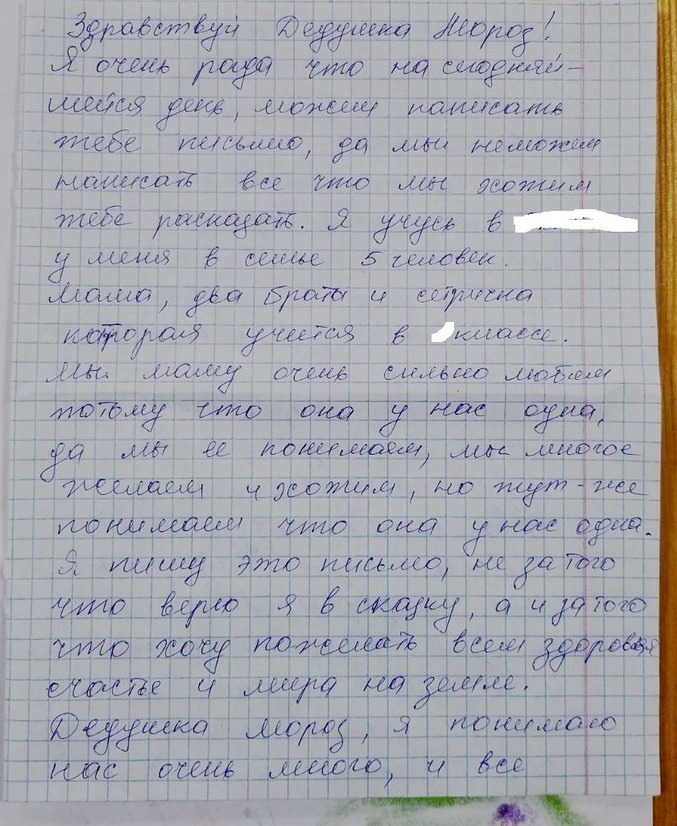 Здравствуй Дедушка Мороз!
Я очень рада что на сиодняй-
шейся день, можем написать
тебе письмо, да мы неможем
написать все что мы хотим
тебе расказать. Я учусь в
у меня в семье 5 человек.
Мама, два брата и сетричка
которая учится в классе.
Мы маму очень сильно любим
потому что она у нас одна,
да мы ее понимаем, мы многое
желаем и хотим, но тут-же
понимаем что она у нас одна.
Я пишу это письмо, не за того
что верю я в сказку, а и за того
что хочу пожелать всем здоровья
счастье и мира на земле.
Дедушка Мороз, я понимаю
нас очень много, и все